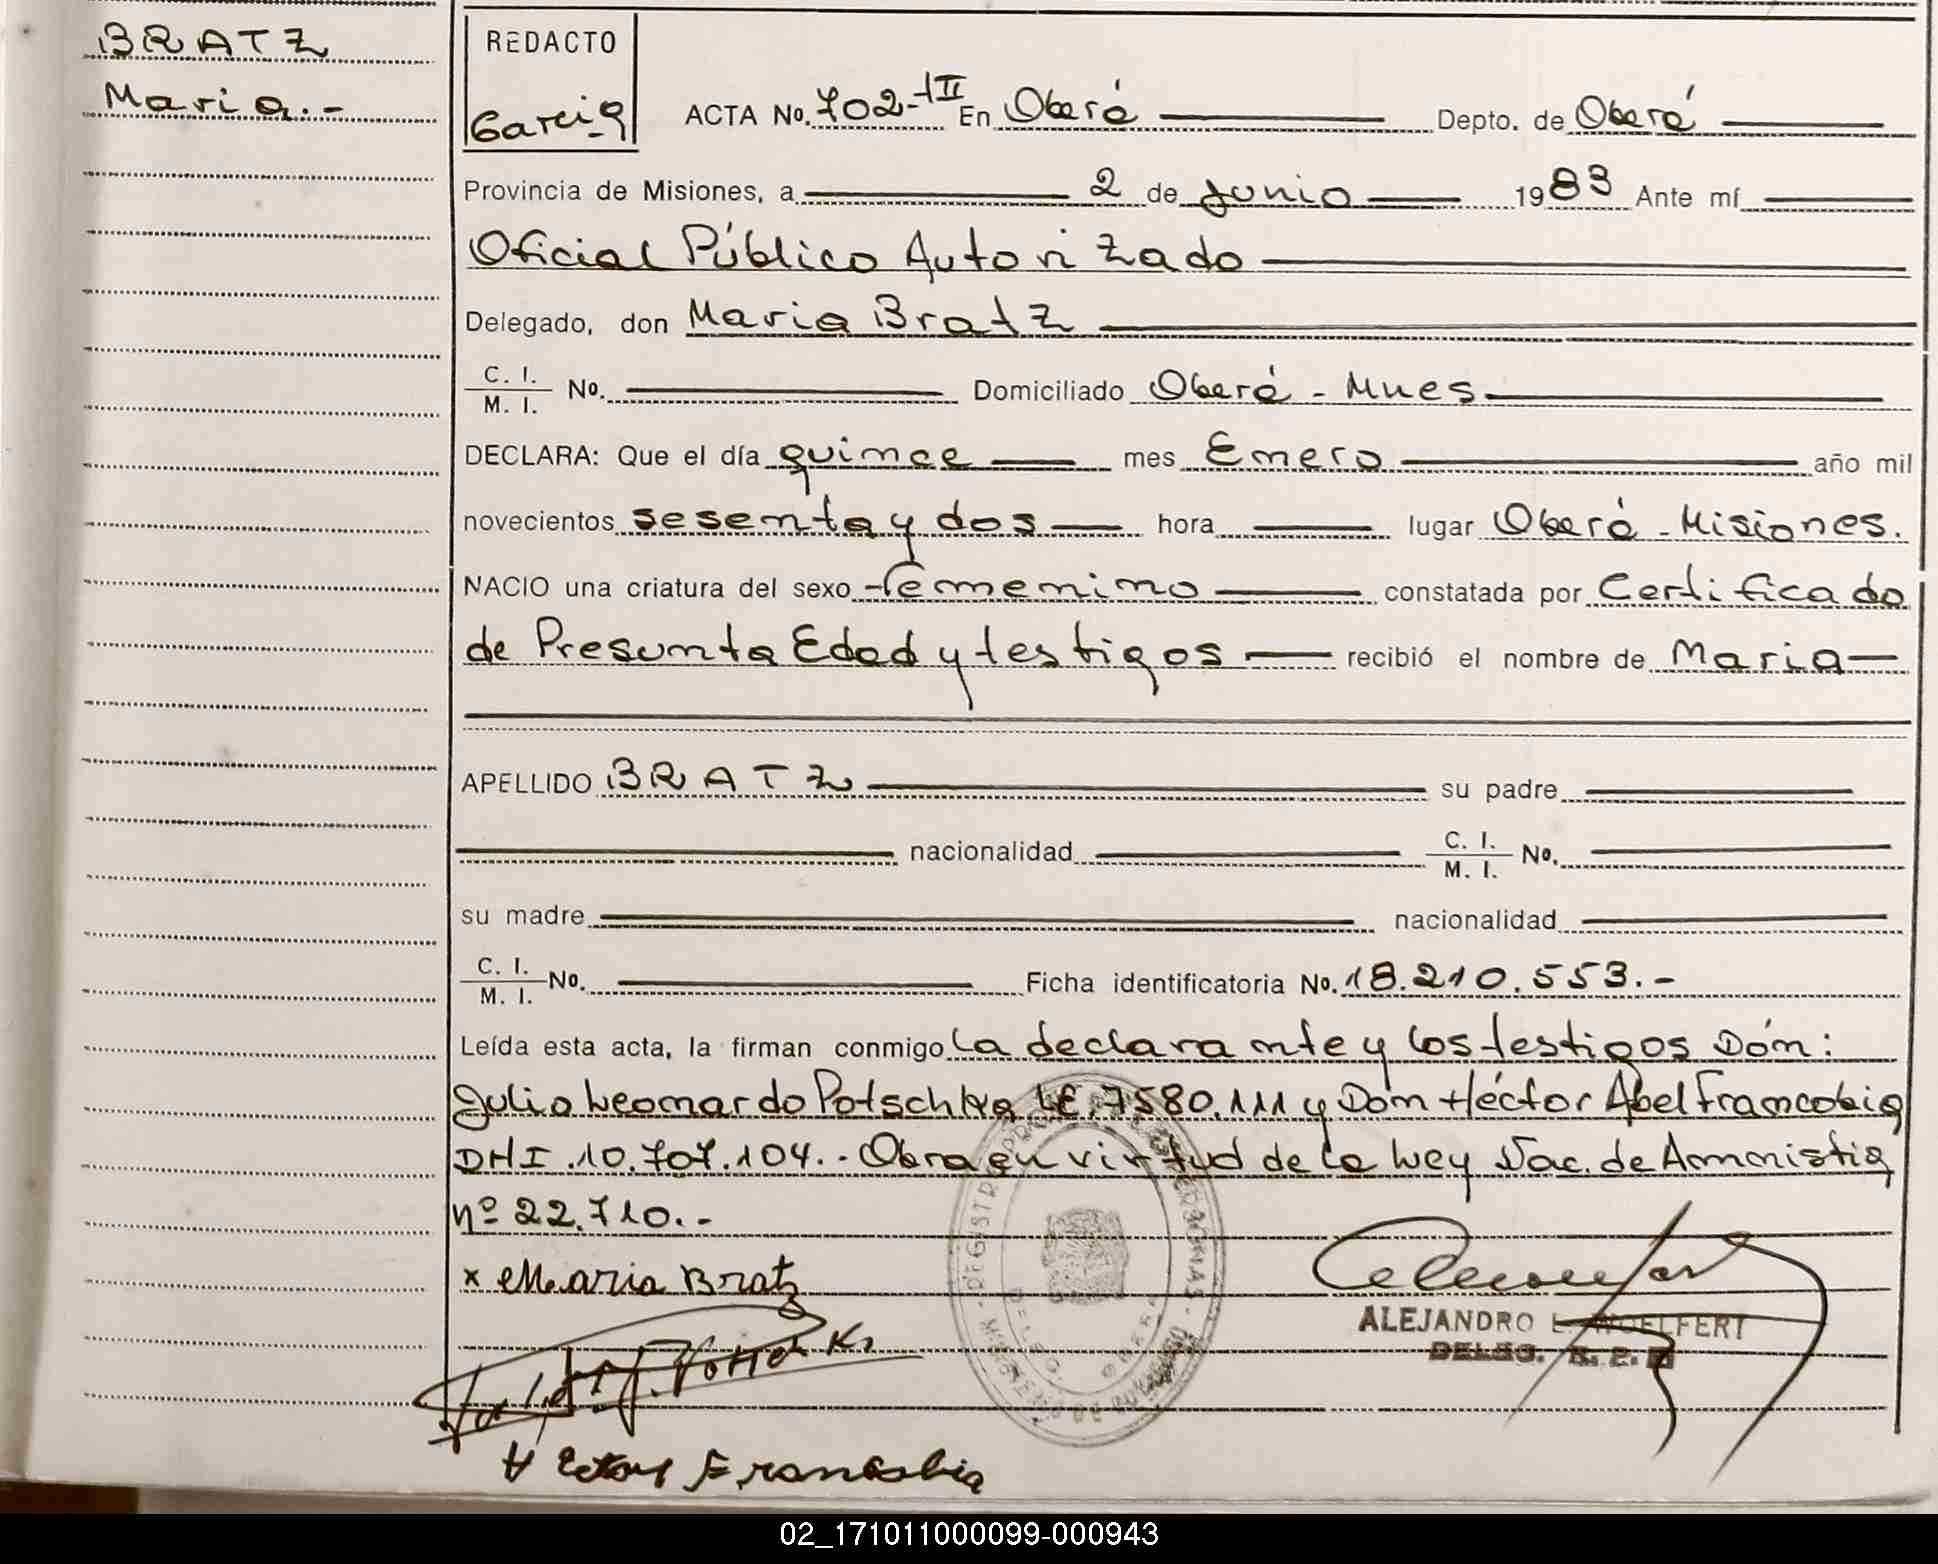 BRATZ
Maria.-
REDACTO
Garcia
ACTA No. 702-III En Oberá Depto. de Oberá
Provincia de Misiones, a 2 de Junio 1983 Ante mí
Oficial Público Autorizado
Delegado, don Maria Bratz
C. I. M. I. No. Domiciliado Oberá - Mnes
DECLARA: Que el día quince mes Enero año mil
novecientos sesenta y dos hora lugar Oberá - Misiones.
NACIO una criatura del sexo femenino constatada por Certificado
de Presunta Edad y testigos recibió el nombre de Maria
APELLIDO BRATZ su padre
nacionalidad C. I. M. I. No.
su madre nacionalidad
C. I. M. I. No. Ficha identificatoria No. 18.210.553.-
Leída esta acta, la firman conmigo La declarante y los testigos Dón:
Julio Leonardo Potschka LE.7580.111 y Dón Héctor Abel Francobia
DNI.10.707.104.- Obra en virtud de la Ley Nac. de Amnistia
nº 22.710.-
x Maria Bratz
ALEJANDRO L. WOELFERT
DELEG. R. P.
Hector Francobia
02_171011000099-000943